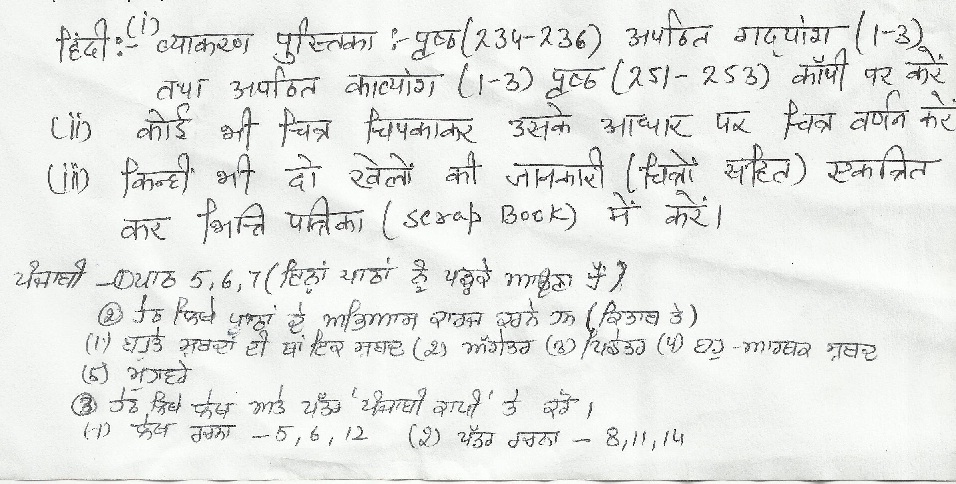 हिंदी:- (i) व्याकरण पुस्तिका :- पृष्ठ (234-236) अपठित गद्यांश (1-3)
तथा अपठित काव्यांश (1-3) पृष्ठ (251-253) कॉपी पर करें
(ii) कोई भी चित्र चिपकाकर उसके आधार पर चित्र वर्णन करें
(iii) किन्हीं भी दो खेलों की जानकारी (चित्रों सहित) एकत्रित
कर भित्ति पत्रिका (Scrap Book) में करें।
ਪੰਜਾਬੀ - ① ਪਾਠ 5, 6, 7 (ਇਨ੍ਹਾਂ ਪਾਠਾਂ ਨੂੰ ਪੜ੍ਹਕੇ ਆਉਣਾ ਹੈ)
② ਹੇਠ ਲਿਖੇ ਪਾਠਾਂ ਦੇ ਅਭਿਆਸ ਕਾਰਜ ਕਰਨੇ ਹਨ (ਕਿਤਾਬ ਤੇ)
(1) ਬਹੁਤੇ ਸ਼ਬਦਾਂ ਦੀ ਥਾਂ ਇਕ ਸ਼ਬਦ (2) ਅੱਗੇਤਰ (3) ਪਿਛੇਤਰ (4) ਬਹੁ-ਅਰਥਕ ਸ਼ਬਦ
(5) ਮੁਹਾਵਰੇ
③ ਹੇਠ ਲਿਖੇ ਲੇਖ ਅਤੇ ਪੱਤਰ 'ਪੰਜਾਬੀ ਕਾਪੀ' ਤੇ ਕਰੋ।
(1) ਲੇਖ ਰਚਨਾ - 5, 6, 12 (2) ਪੱਤਰ ਰਚਨਾ - 8, 11, 14